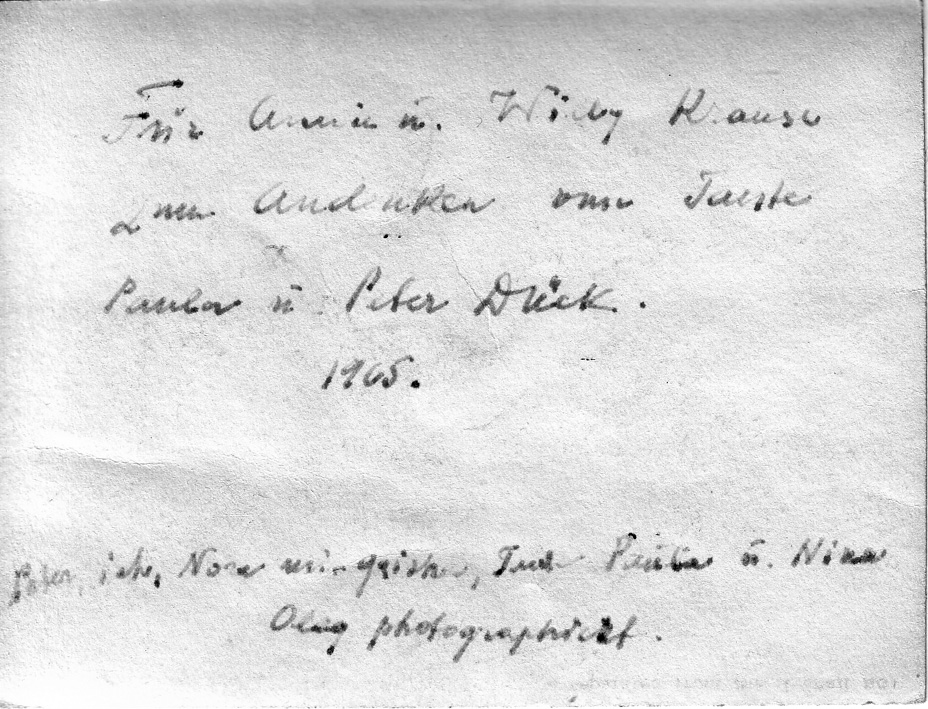 Für Annie u. Willy Krause
zum Andenken von Tante
Paula u Peter Dück.
1965.
Peter, ich, Nora Paula u. Nina
Oleg photographiert.